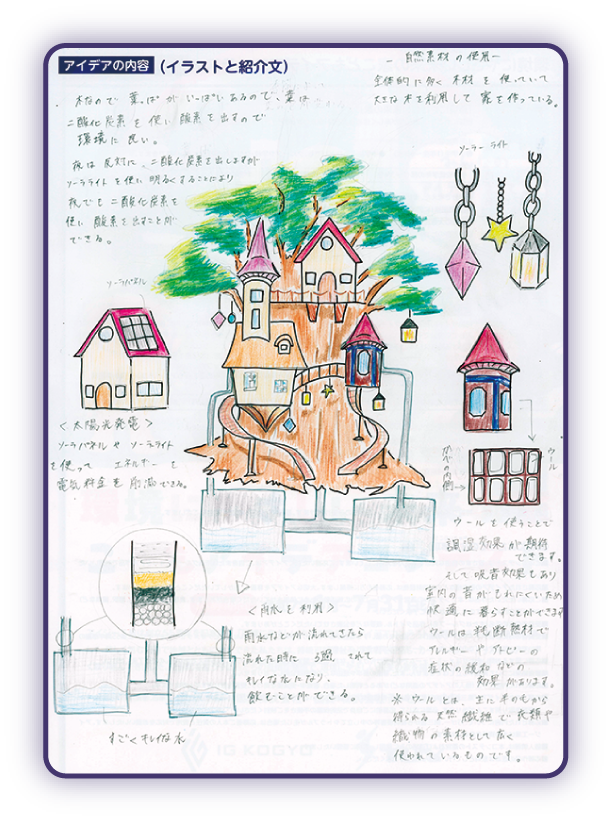 アイデアの内容 (イラストと紹介文)
木なので 葉っぱ が いっぱい あるので、葉は
二酸化炭素 を 使い 酸素 を 出すので
環境 に 良い。
夜は 反対に、二酸化炭素 を 出しますが
ソーラライト を 使い 明るく することにより
夜でも 二酸化炭素 を
使い 酸素 を 出すことが
できる。
- 自然素材 の 使用 -
全体的 に 多く 木材 を 使っていて
大きな 木 を 利用 して 家 を 作っている。
ソーラー ライト
ソーラパネル
<太陽光発電>
ソーラパネル や ソーラライト
を 使って エネルギー を
電気料金 を 削減 できる。
かべの内側
ウール
ウール を 使うことで
調湿効果 が 期待
できます。
そして 吸音効果 も あり
室内 の 音が もれにくい ため
快適 に 暮らすことが できます
ウールは 断熱材 で
アレルギー や アトピー の
症状 の 緩和 などの
効果 が あります。
※ ウール とは、主に 羊の毛から
得られる 天然 繊維 で 衣類 や
織物 の 素材 として 広く
使われているもの です。
<雨水 を 利用>
雨水 などが 流れてきたら
流れた時に ろ過 されて
キレイな水 になり、
飲むことが できる。
すごく キレイな 水
IG KOGYO